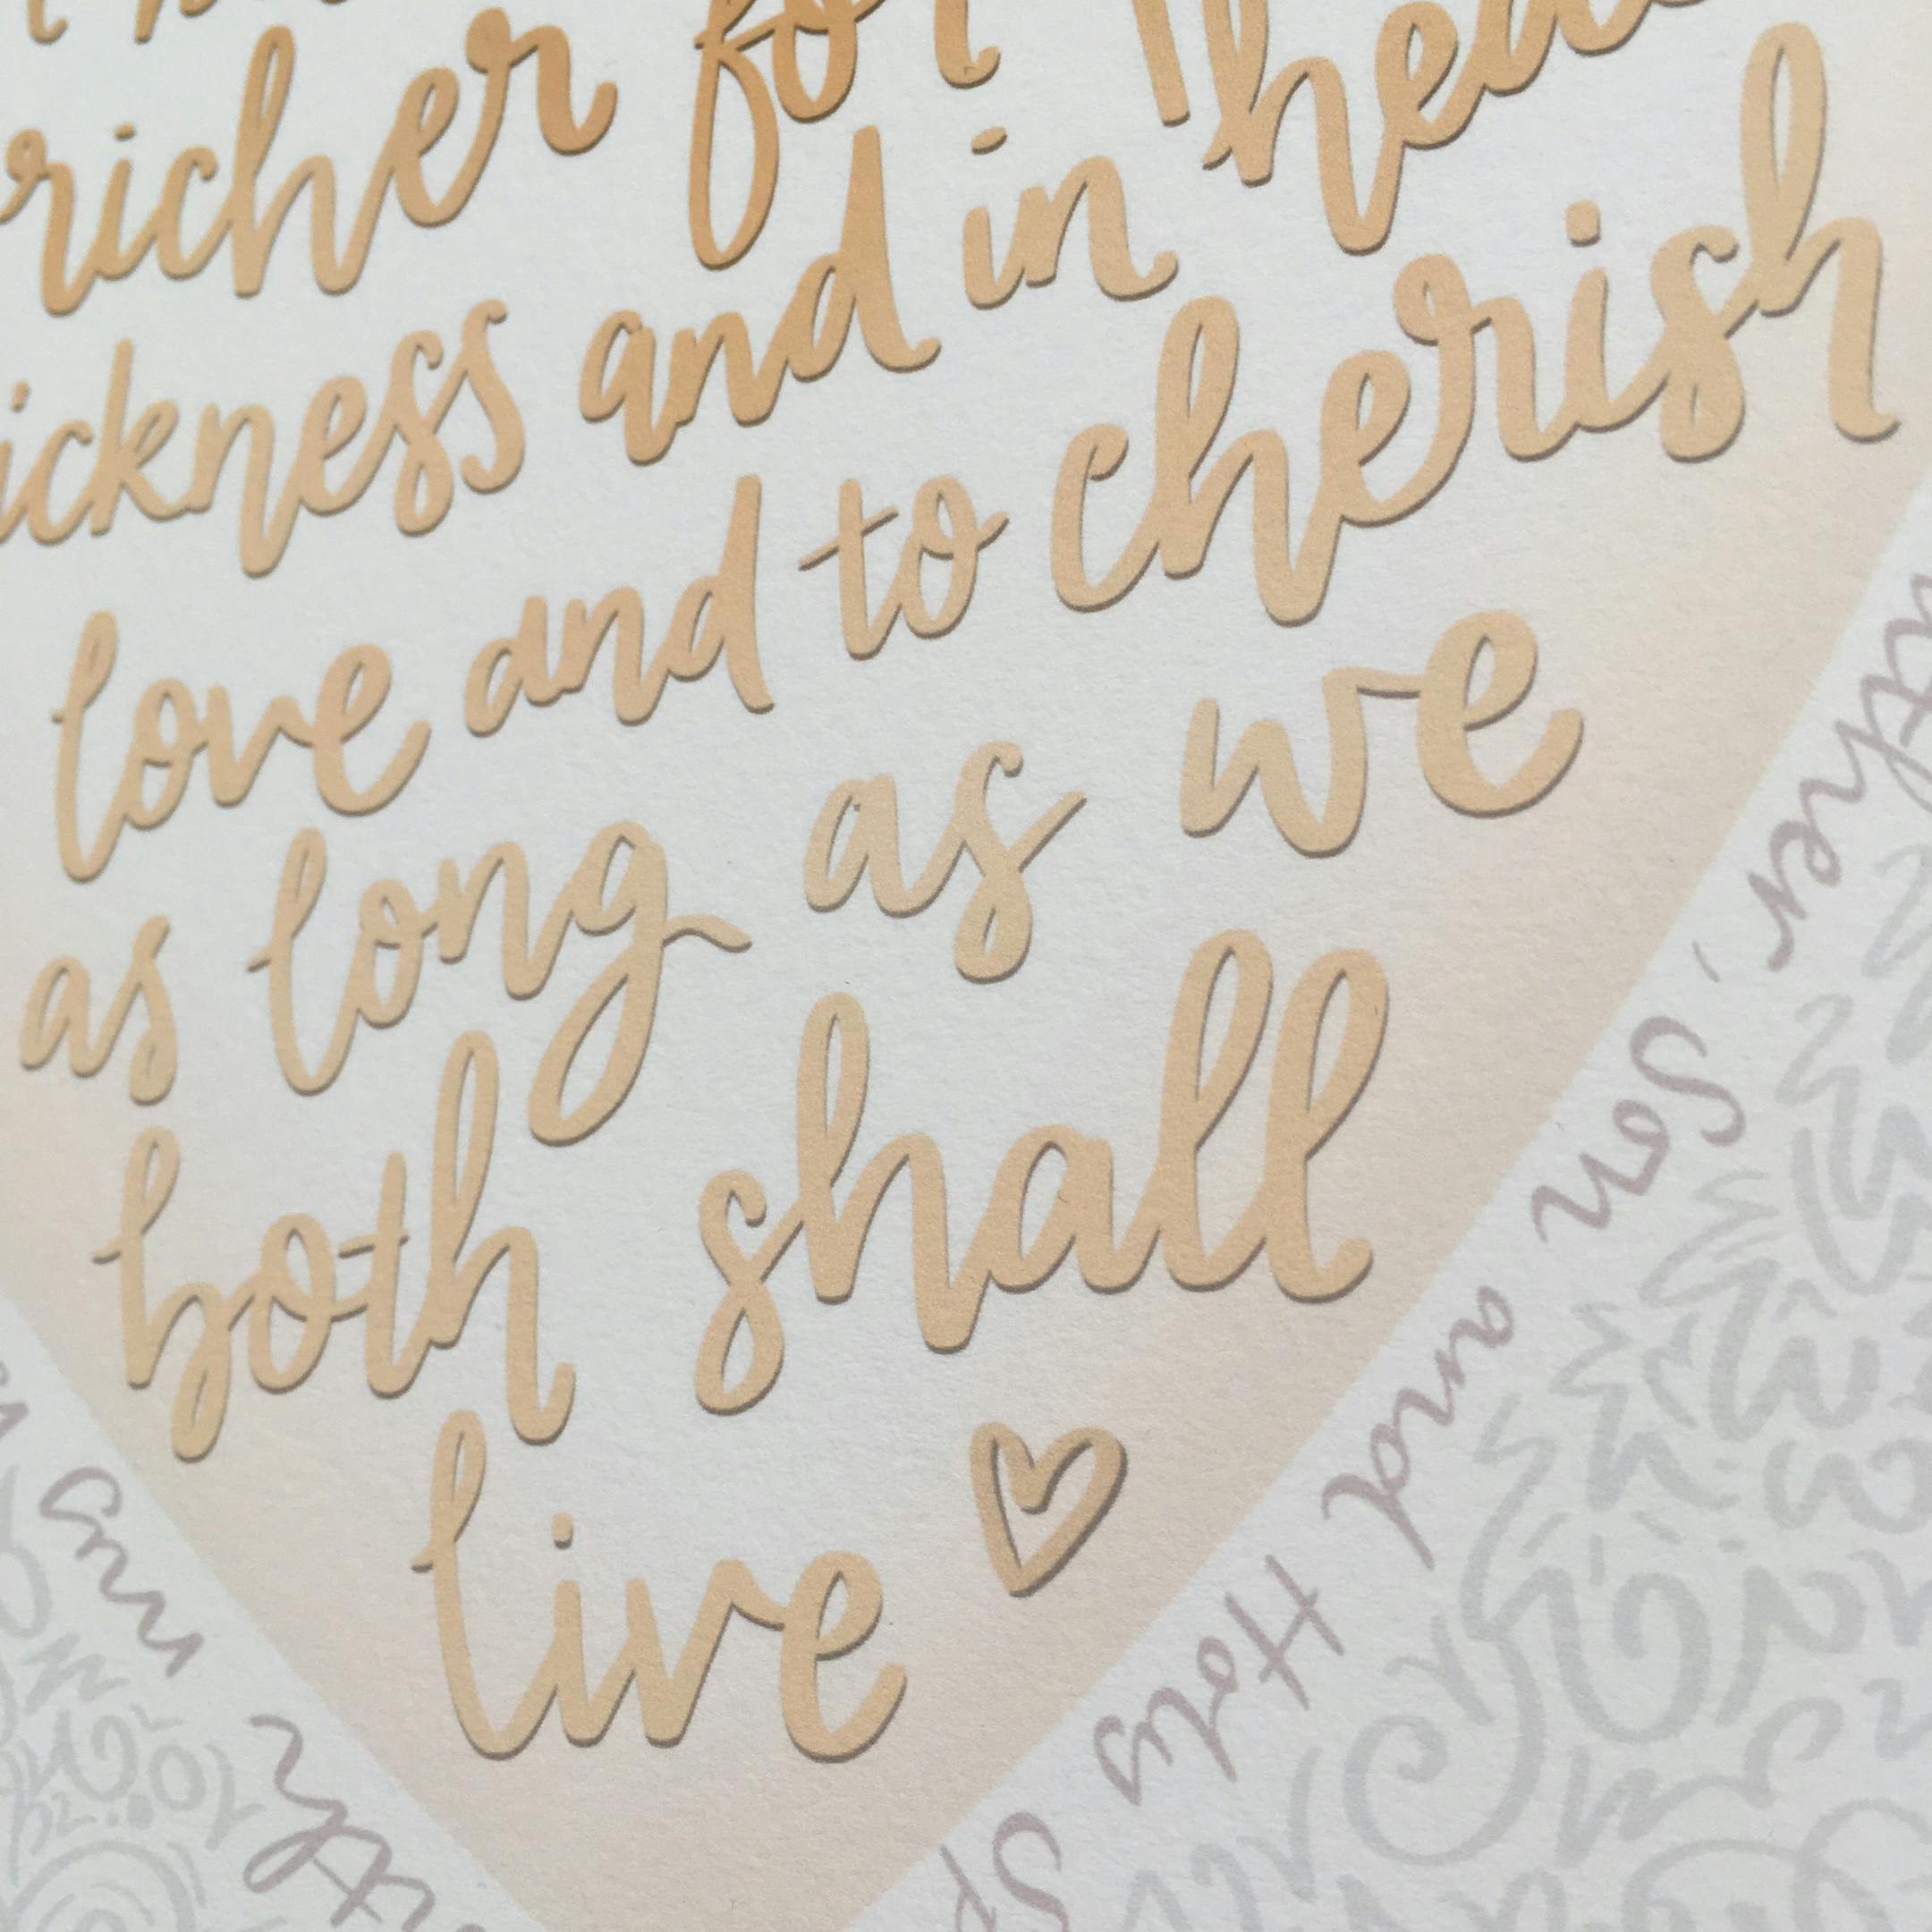 richer for
ickness and in hea
love and to cherish
as long as we
both shall
live
ther, Son and Holy Sp